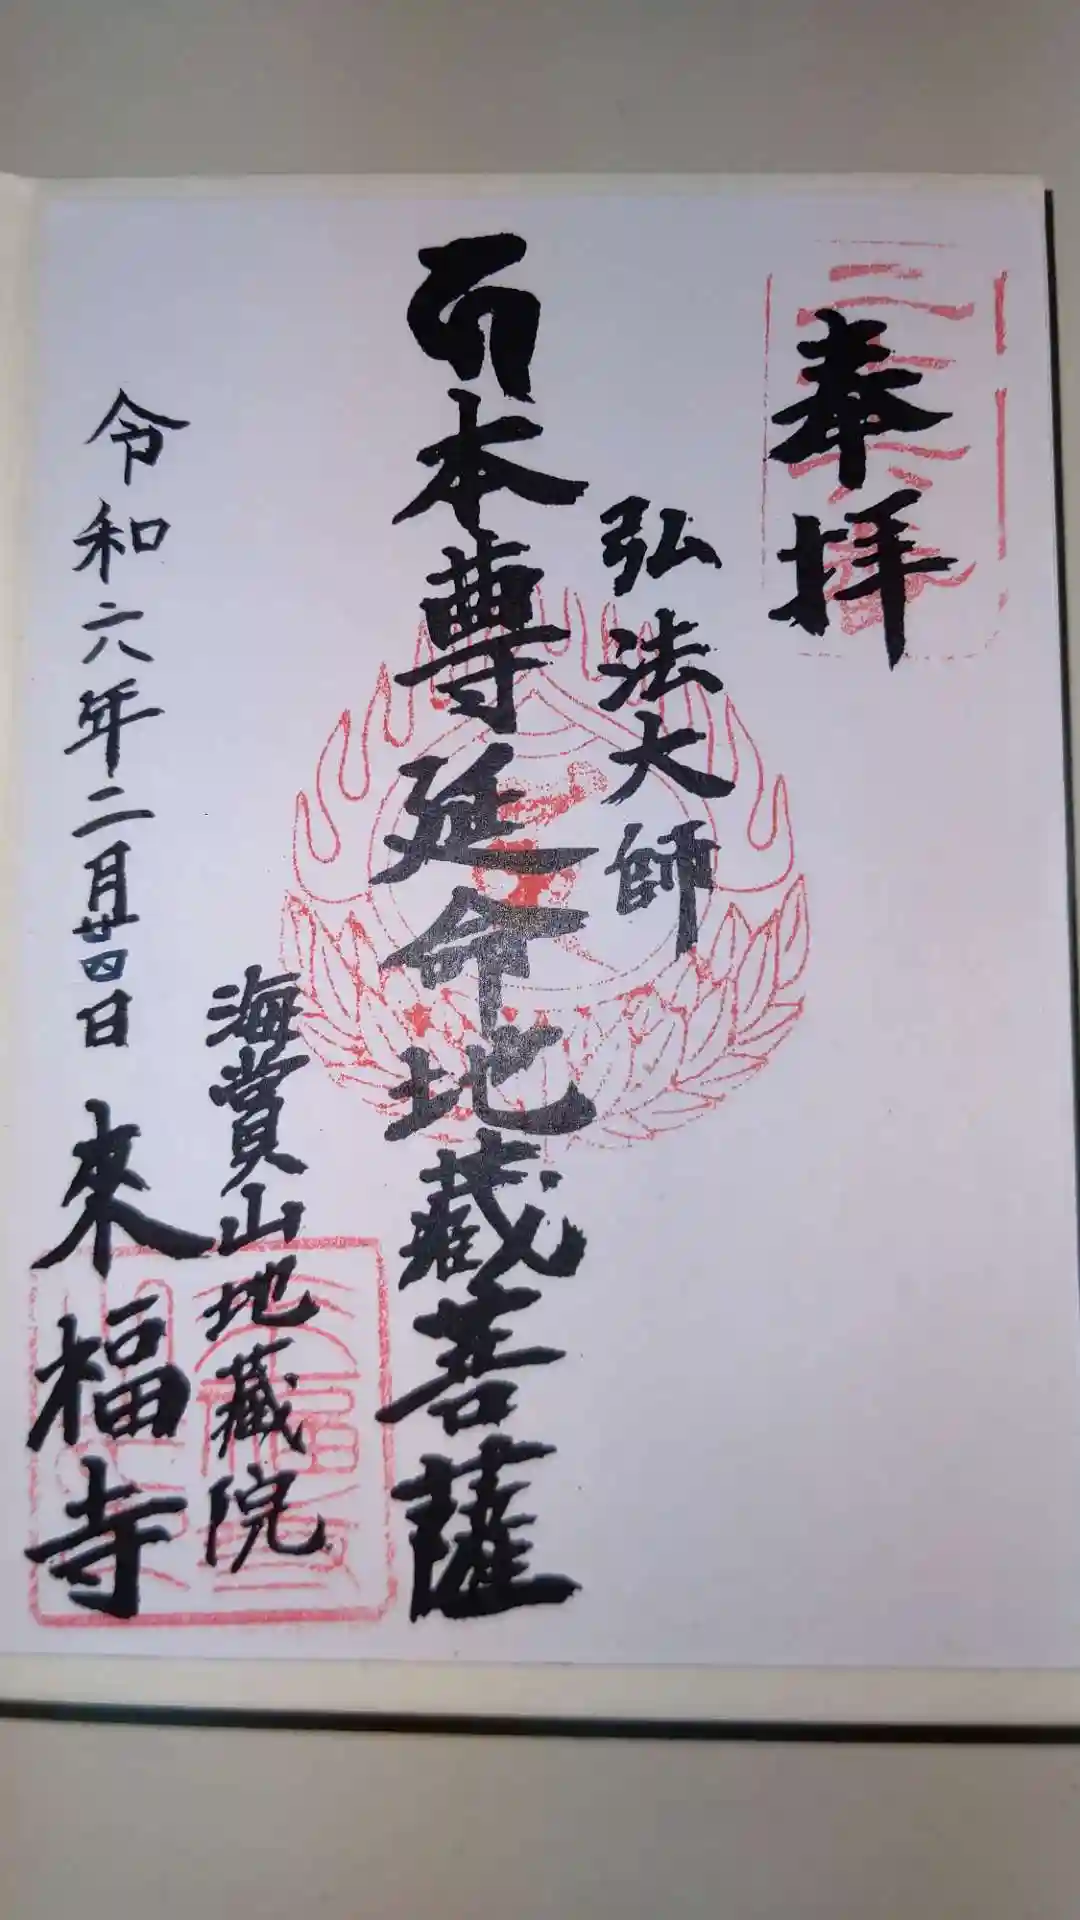 奉拝
弘法大師
本尊延命地蔵菩薩
海賞山地蔵院
令和六年二月廿四日
來福寺